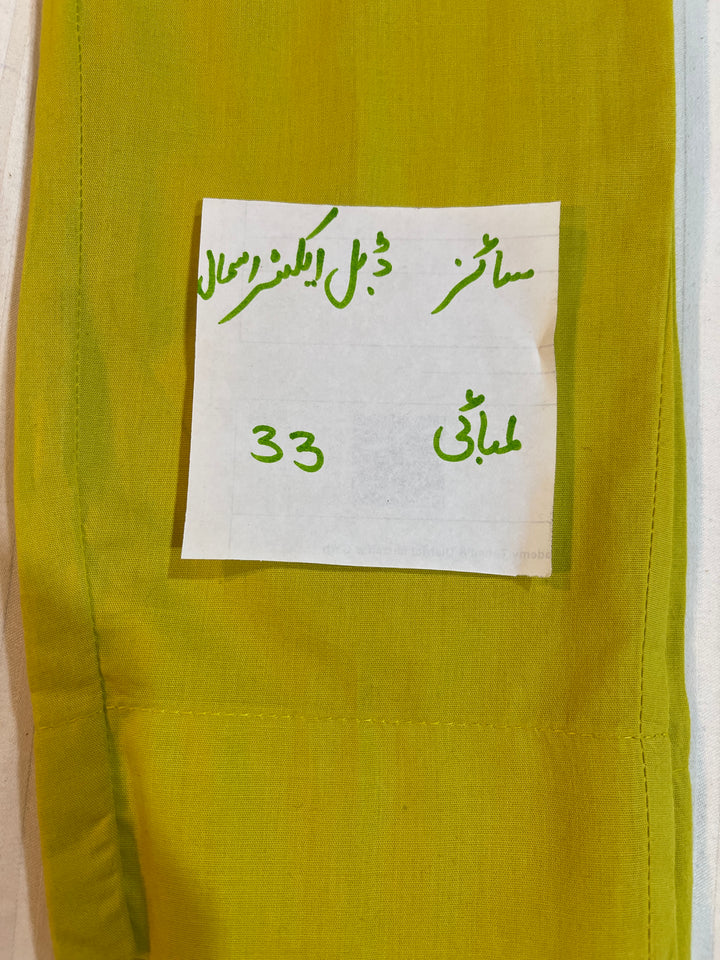 سائز ڈبل ایکسٹر اسمال
لمبائی 33